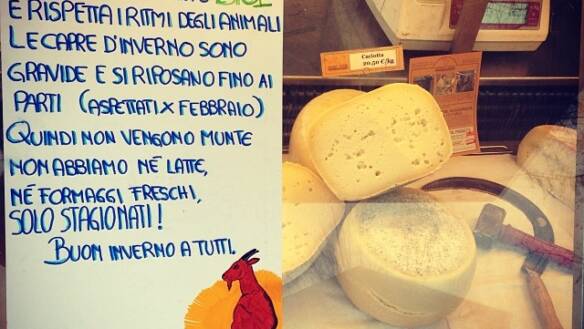 E RISPETTA I RITMI DEGLI ANIMALI
LE CAPRE D'INVERNO SONO
GRAVIDE E SI RIPOSANO FINO AI
PARTI (ASPETTATI X FEBBRAIO)
QUINDI NON VENGONO MUNTE
NON ABBIAMO NÉ LATTE,
NÉ FORMAGGI FRESCHI,
SOLO STAGIONATI!
BUON INVERNO A TUTTI.
Caciotta
20,50 €/kg